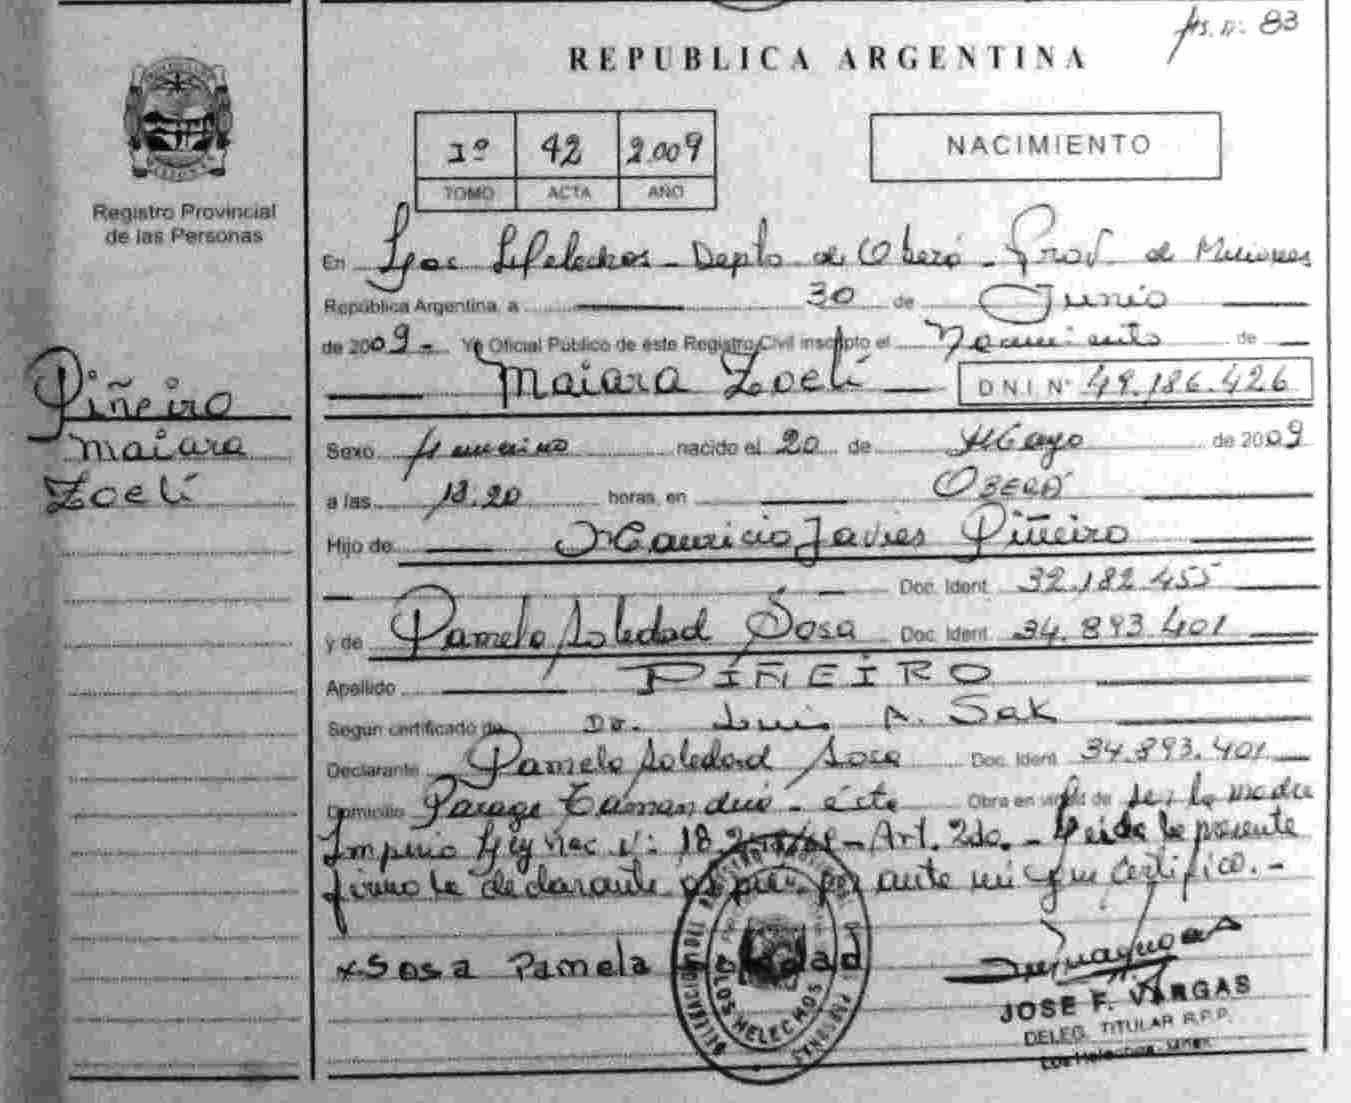 fs. n: 83
REPUBLICA ARGENTINA
1º 42 2.009
TOMO ACTA AÑO
NACIMIENTO
Registro Provincial
de las Personas
En Los Helechos - Depto de Oberá - Prov. de Misiones
República Argentina, a 30 de Junio
de 2009 - Yo Oficial Público de este Registro Civil inscripto el Nacimiento de
Maiara Zoelí D N I Nº 49.186.426
Piñeiro
Maiara
Zoelí
Sexo femenino nacido el 20 de Mayo de 2009
a las 13.20 horas, en OBERÁ
Hijo de Mauricio Javier Piñeiro
Doc. Ident. 32.182.455
y de Pamela Soledad Sosa Doc. Ident. 34.893.401
Apellido PIÑEIRO
Según certificado de Dr. Luis A. Sak
Declarante Pamela Soledad Sosa Doc. Ident. 34.893.401
Domicilio Paraje Tamanduá - éste Obra en virtud de ser la madre
Ley Nac. Nº 18. - Art. 2do. - Leída la presente
firmó la declarante por ante mí que certifico. -
x Sosa Pamela
LOS HELECHOS
JOSE F. VARGAS
DELEG. TITULAR R.P.P.
Los Helechos - Mnes.